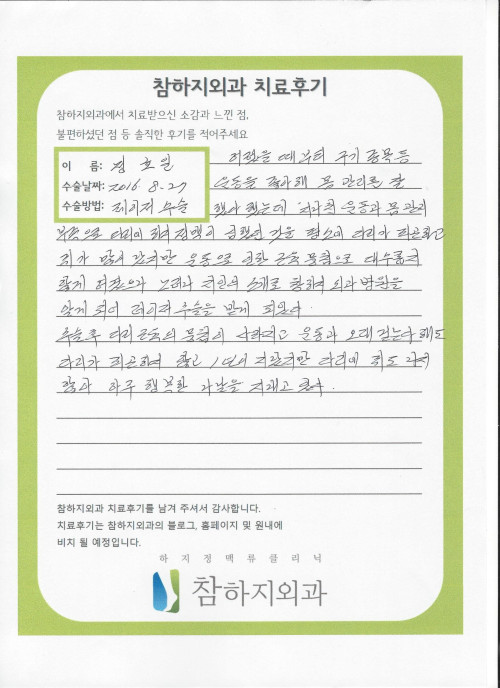 참하지외과 치료후기
참하지외과에서 치료받으신 소감과 느낀 점,
불편하셨던 점 등 솔직한 후기를 적어주세요
이 름: 호일
수술날짜: 2016. 8. 27
수술방법: 레이저 수술
어렸을 때부터 구기 종목등
운동을 좋아해 몸 관리를 잘
했다 했는데 지나친 운동과 몸 관리
부족으로 다리에 하지정맥이 심했던 것을 평소에 다리가 피곤하고
쥐가 많이 났지만 운동으로 인한 근육 뭉침으로 대수롭지
않게 여겼으나 지인의 소개로 참하지 외과 병원을
알게 되어 레이저 수술을 받게 되었다.
수술후 다리근육의 뭉침이 사라지고 운동과 오래 걷는다 해도
다리가 피곤하지 않고 1년이 지났지만 다리에 쥐도 나지
않아 하루 행복한 나날을 지내고 있다.
참하지외과 치료후기를 남겨 주셔서 감사합니다.
치료후기는 참하지외과의 블로그, 홈페이지 및 원내에
비치 될 예정입니다.
하지정맥류클리닉
참하지외과